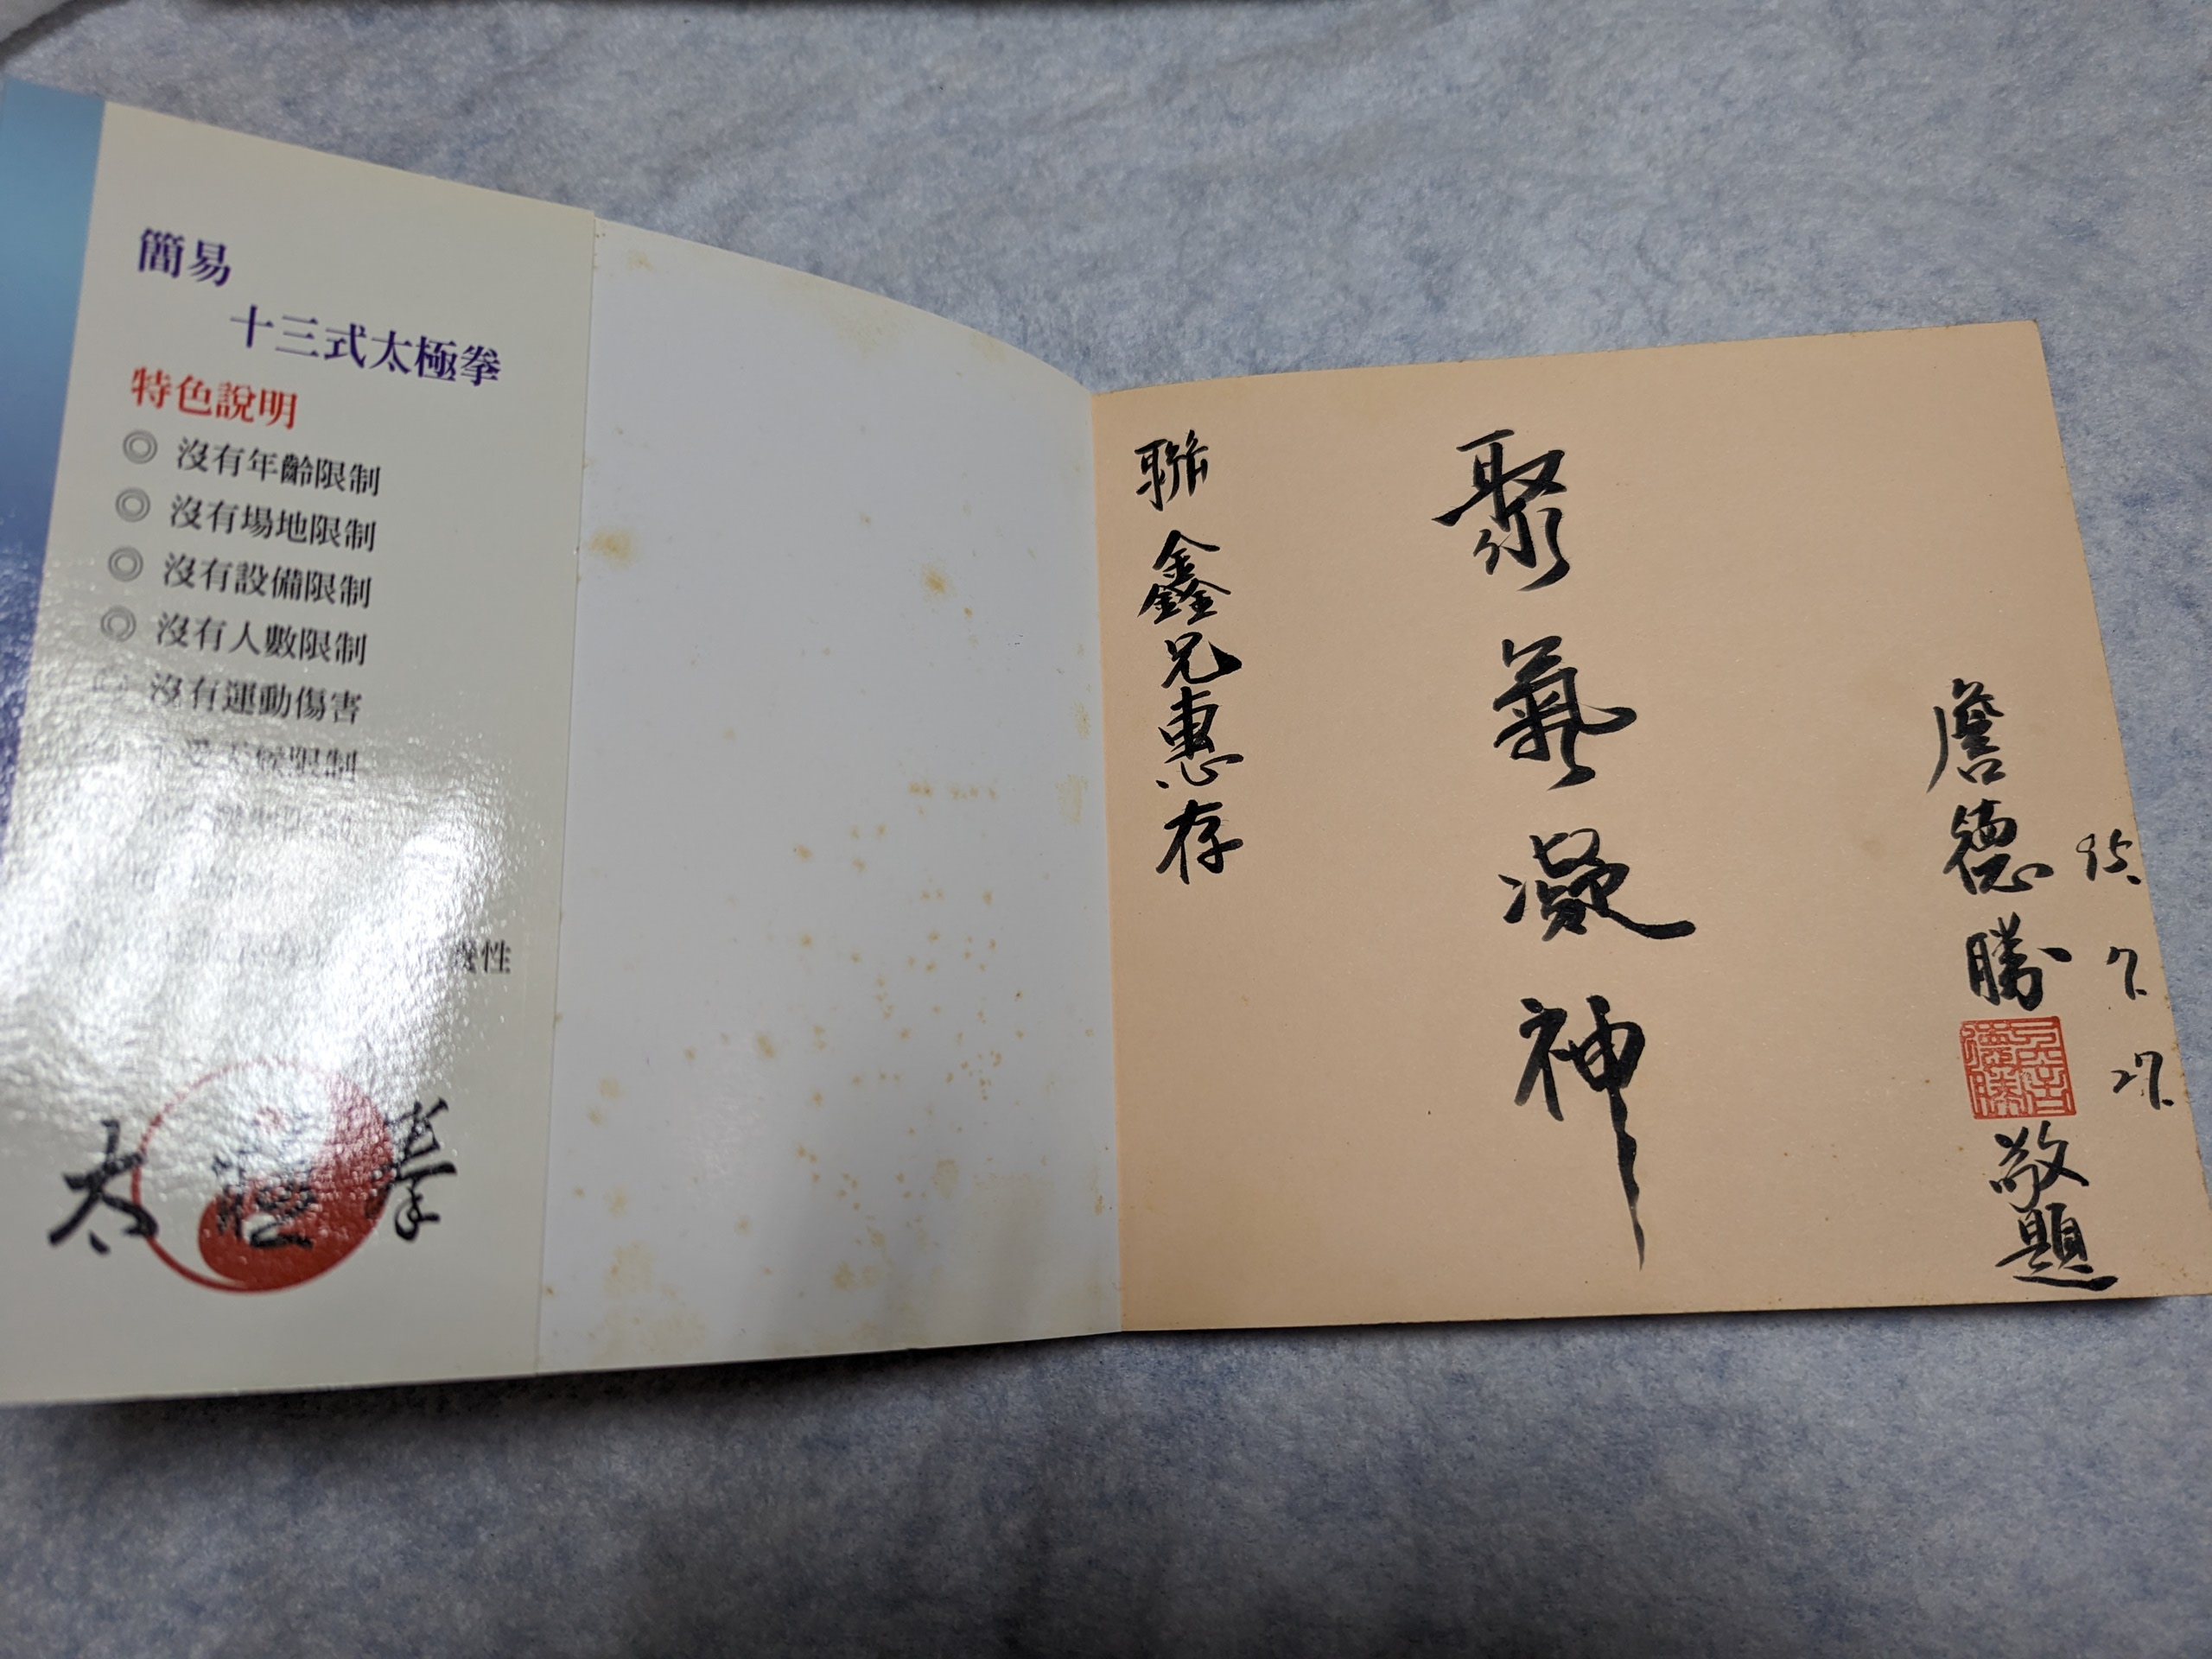 簡易
十三式太極拳
特色說明
◎ 沒有年齡限制
◎ 沒有場地限制
◎ 沒有設備限制
◎ 沒有人數限制
◎ 沒有運動傷害
不受天候限制
性
太極拳
聯鑫兄惠存
聚氣凝神
詹德勝
敬題
95.7.27.